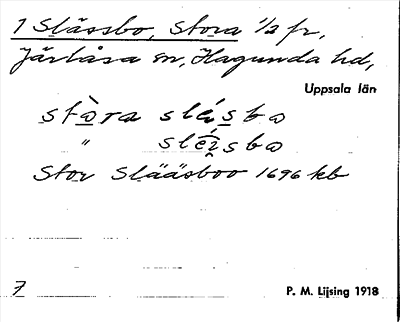 1 Slässbo, Stora 1/2 fr,
Järlåsa sn, Hagunda hd,
Uppsala län
stòra slésba
" sléi̯sba
Stor Slääsboo 1696 kb
7
P. M. Lijsing 1918